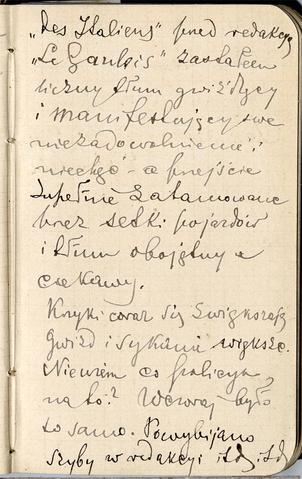 „Des Italiens" przed redakcją
„Le Gaulois" zastałem
liczny tłum gwiżdżący
i manifestujący swe
niezadowolnienie i
niechęć - a przejście
zupełnie zatamowane
przez setki pojazdów
i tłum obojętny a
ciekawy.
Krzyki coraz się zwiększają
Gwizd i sykania większe.
Niewiem co policya
na to? Wczoraj było
to samo. Powybijano
szyby w redakcyi itd. itd.